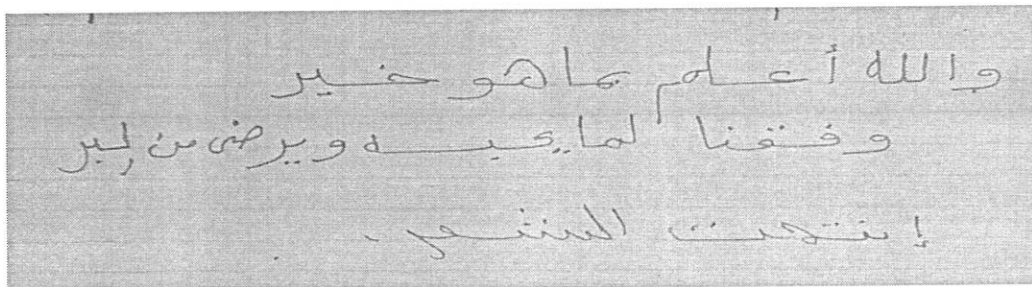 والله أعلم بما هو خير
وفقنا لما يحبه ويرضى من البر
إنتهت